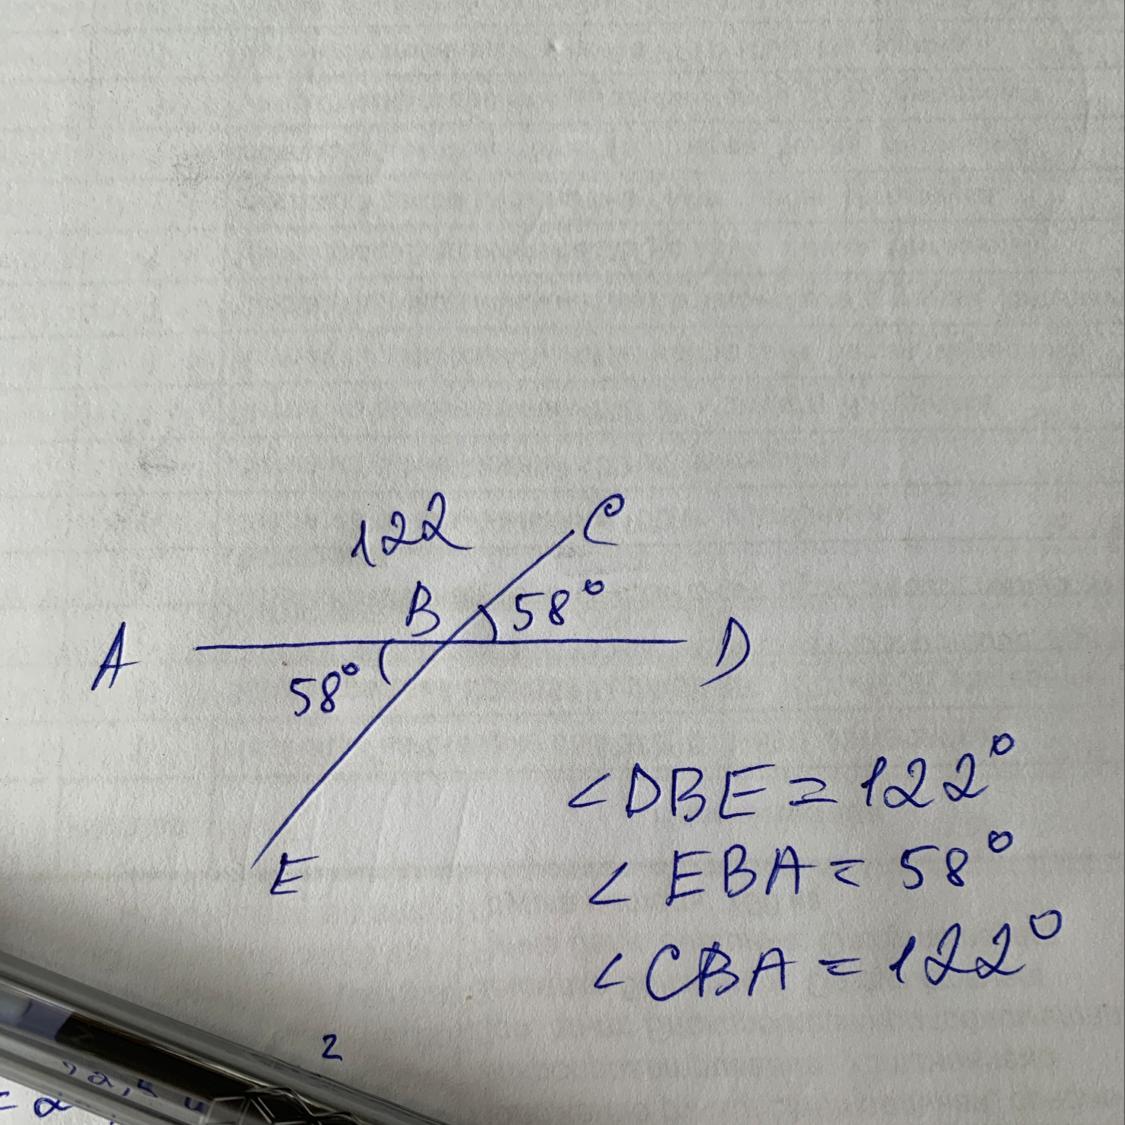 122
C
B
58°
A
D
58°
E
<DBE = 122°
<EBA = 58°
<CBA = 122°
2